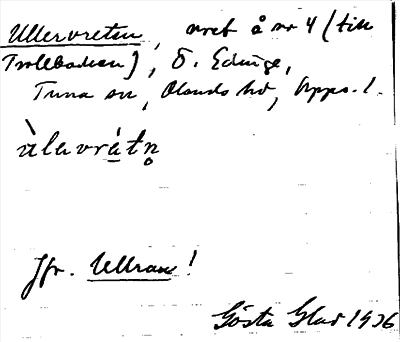 Ullervreten, vret å nr 4 (till
Trollbacken), Ö. Edinge,
Tuna sn, Olands hd, Upps. l.
ùlavrá̱tn̥
Jfr. Ullran!
Gösta Glad 1936